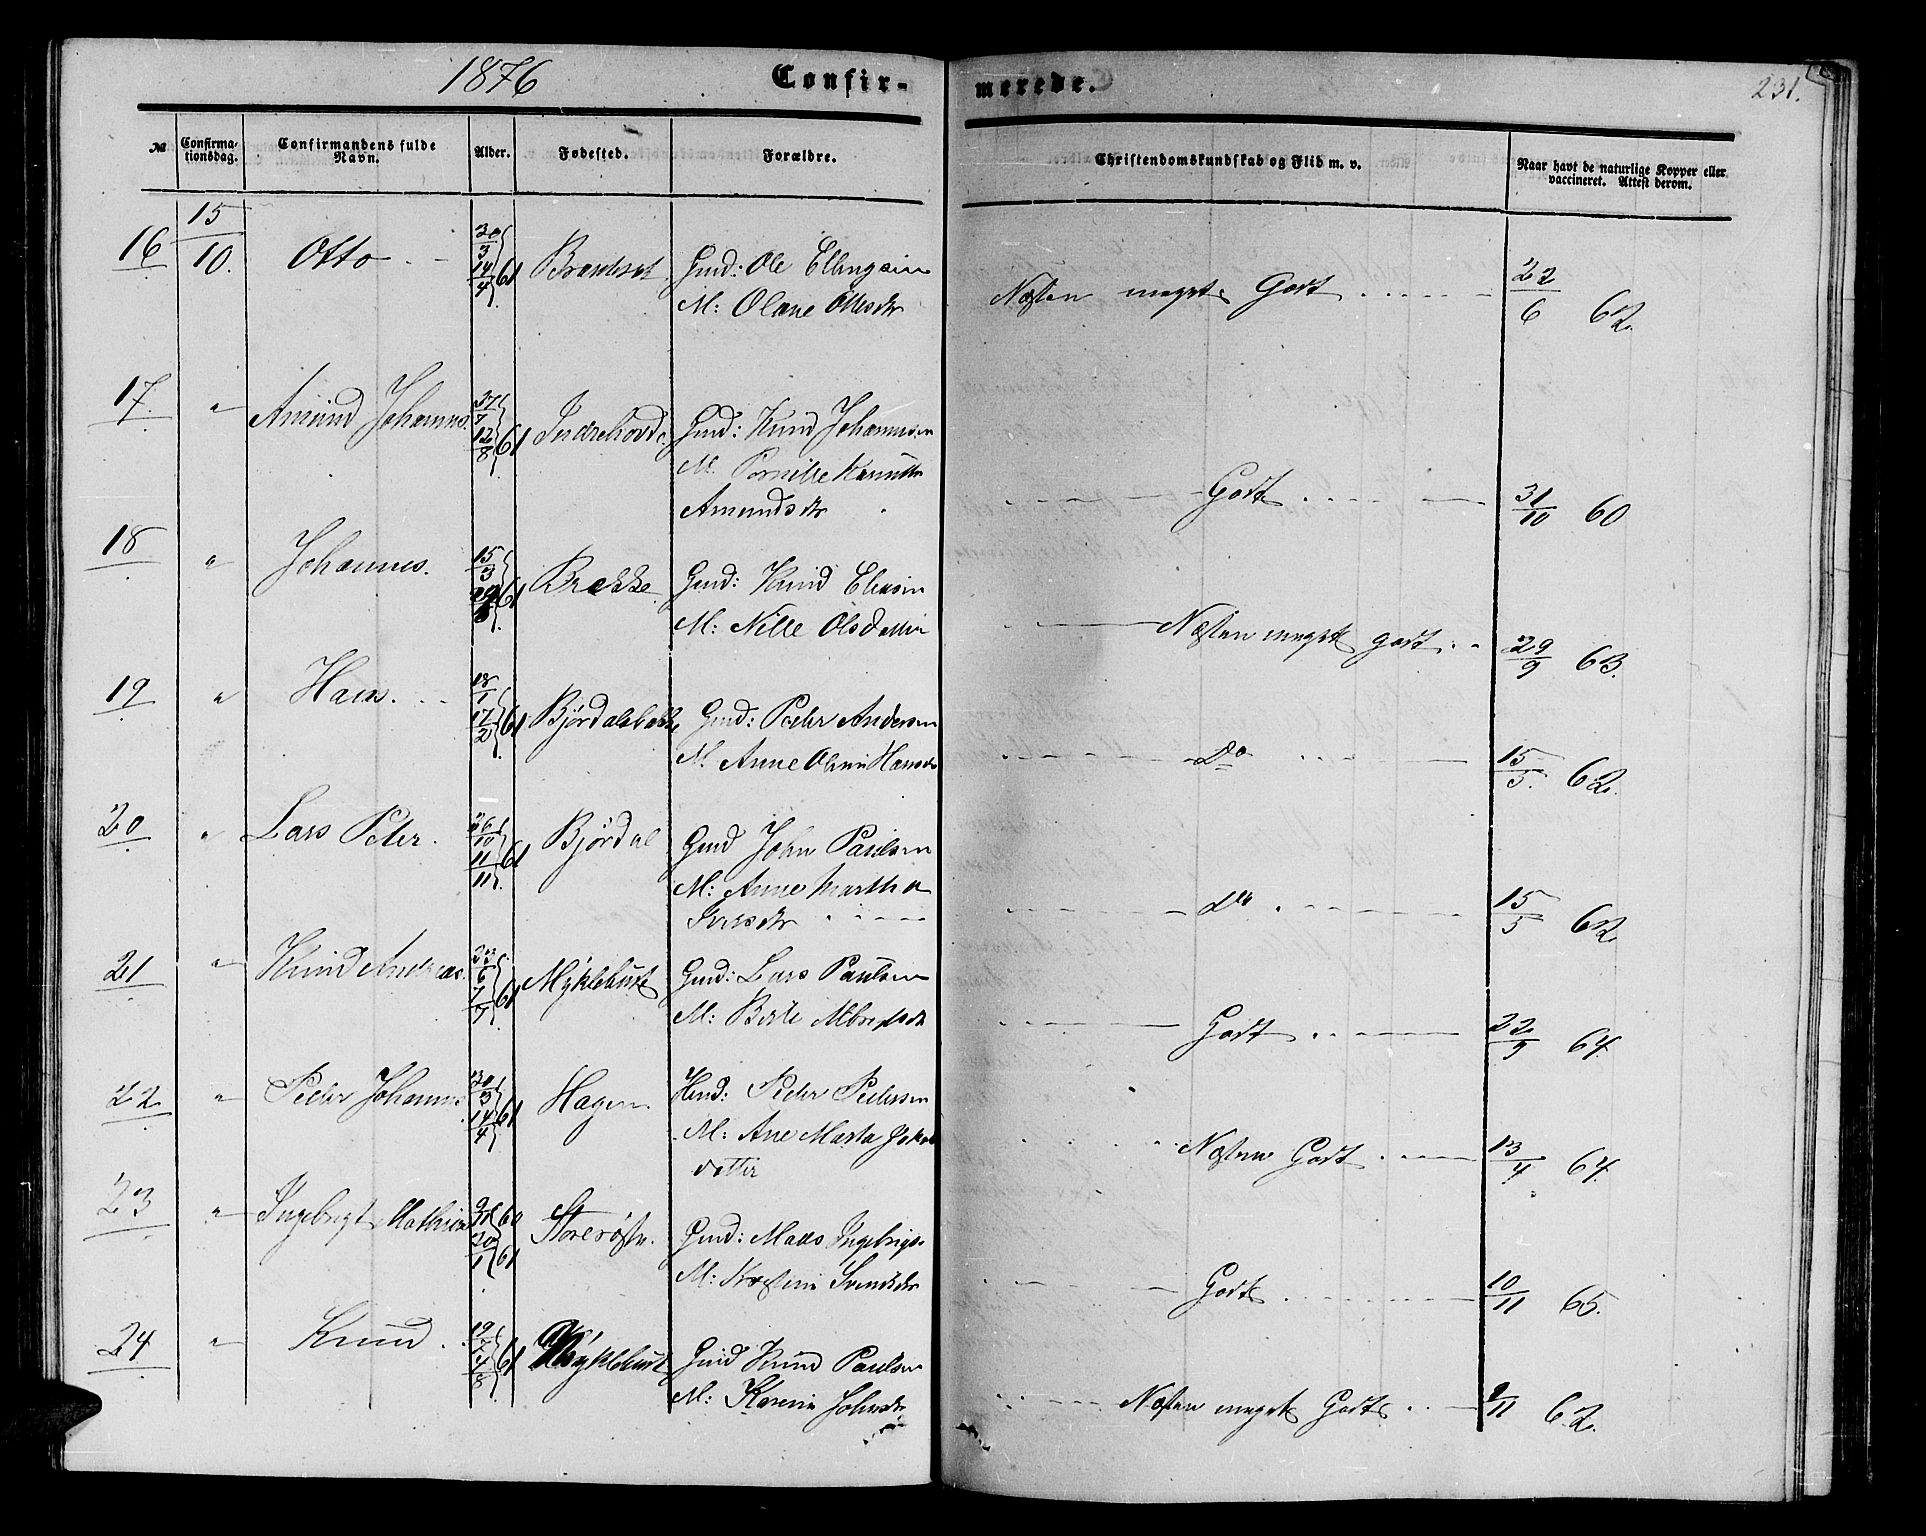 1876 Confir- merede. 231.
№ Confirma-tionsdag. Confirmandens fulde Navn. Alder. Fødested. Forældre. Christendomskundskab og Flid m. v. Naar havt de naturlige Kopper eller vaccineret. Attest derom.
16 15/10. Otto 30/3 14/4 61 Gmd: Ole Ellingsen Næsten meget Godt 22/6 62.
M: Olane Ottesdtr
17. " Amund Johannes. 12/8 61 Indrehovde Gmd: Knud Johannesen
M. Pernille
Amundsdtr Godt 31/10 60
18 " Johannes. 15/3 61 Brekke Gmd: Knud
M: Nille Olsdatter Næsten meget godt 29/9 63.
19 " Hans. 18/1 17/2 61 Bjørdalsbakke Gmd: Peder Andersen
M. Anne Hansdtr Do 15/5. 62.
20 " Lars Peter. 26/10 11/11 61 Bjørdal Gmd John Paulsen
M: Anne Martha
Iversdtr Do 15/5 62
21 " Knud Andreas. 23/6 7/7 61 Myklebust Gmd: Lars Paulsen
M: Berte Godt 22/9 64.
22 " Peder Johannes 30/3 14/4 61 Hagen. Hmd: Peder Pedersen
M: Ane Marta
datter Næsten Godt 13/4 64.
23 " Ingebrigt Mathias 60 20/1 61 Storerøstn. Gmd: Mads Ingebrigs.
M: Svendsdtr Godt 10/11 65.
24 " Knud 19/7 4/8 61 Myklebust Gmd Knud Paulsen
M: Karen Johnsdtr Næsten meget Godt 9/11 62.